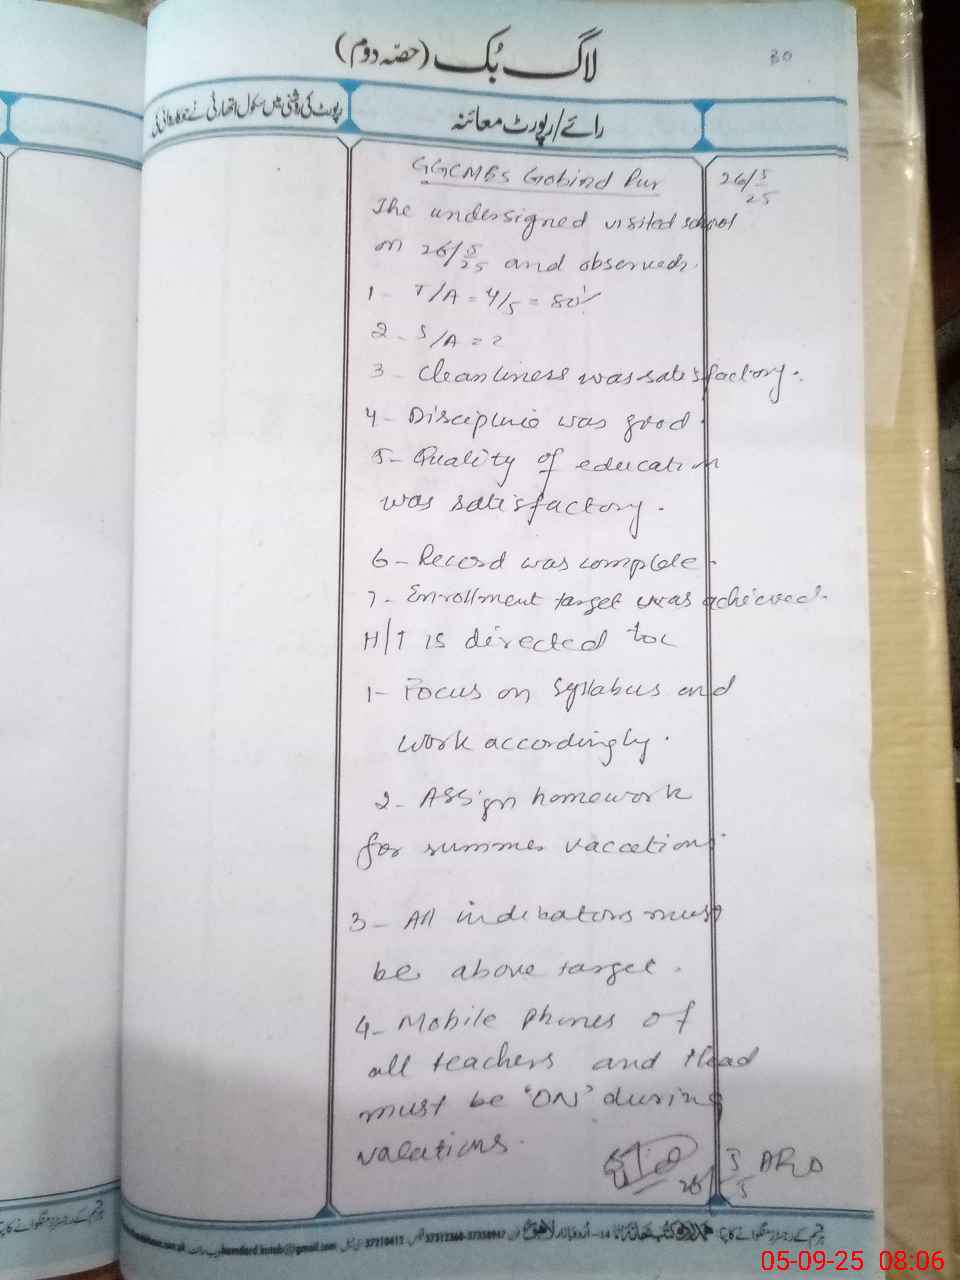 لاگ بُک (حصّہ دوم)
30
رائے/رپورٹ معائنہ
رپورٹ کی روشنی میں سکول اتھارٹی نے جو کاروائی کی
GGCMES Gobind Pur
26/5/25
The undersigned visited school
on 26/5/25 and observed.
1- T/A = 4/5 = 80%
2- S/A = 2
3- Cleanliness was satisfactory.
4- Discipline was good.
5- Quality of education
was satisfactory.
6- Record was complete.
7- Enrollment target was achieved.
H/T is directed to:
1- Focus on Syllabus and
work accordingly.
2- Assign homework
for summer vacation.
3- All indicators must
be above target.
4- Mobile phones of
all teachers and Head
must be 'ON' during
vacations.
26/5